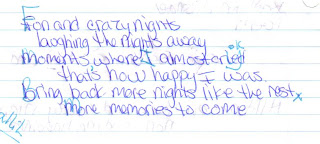 Fun and crazy nights
laughing the nights away
Moments, where I almost cried
that's how happy I was.
Bring back more nights like the rest
more memories to come